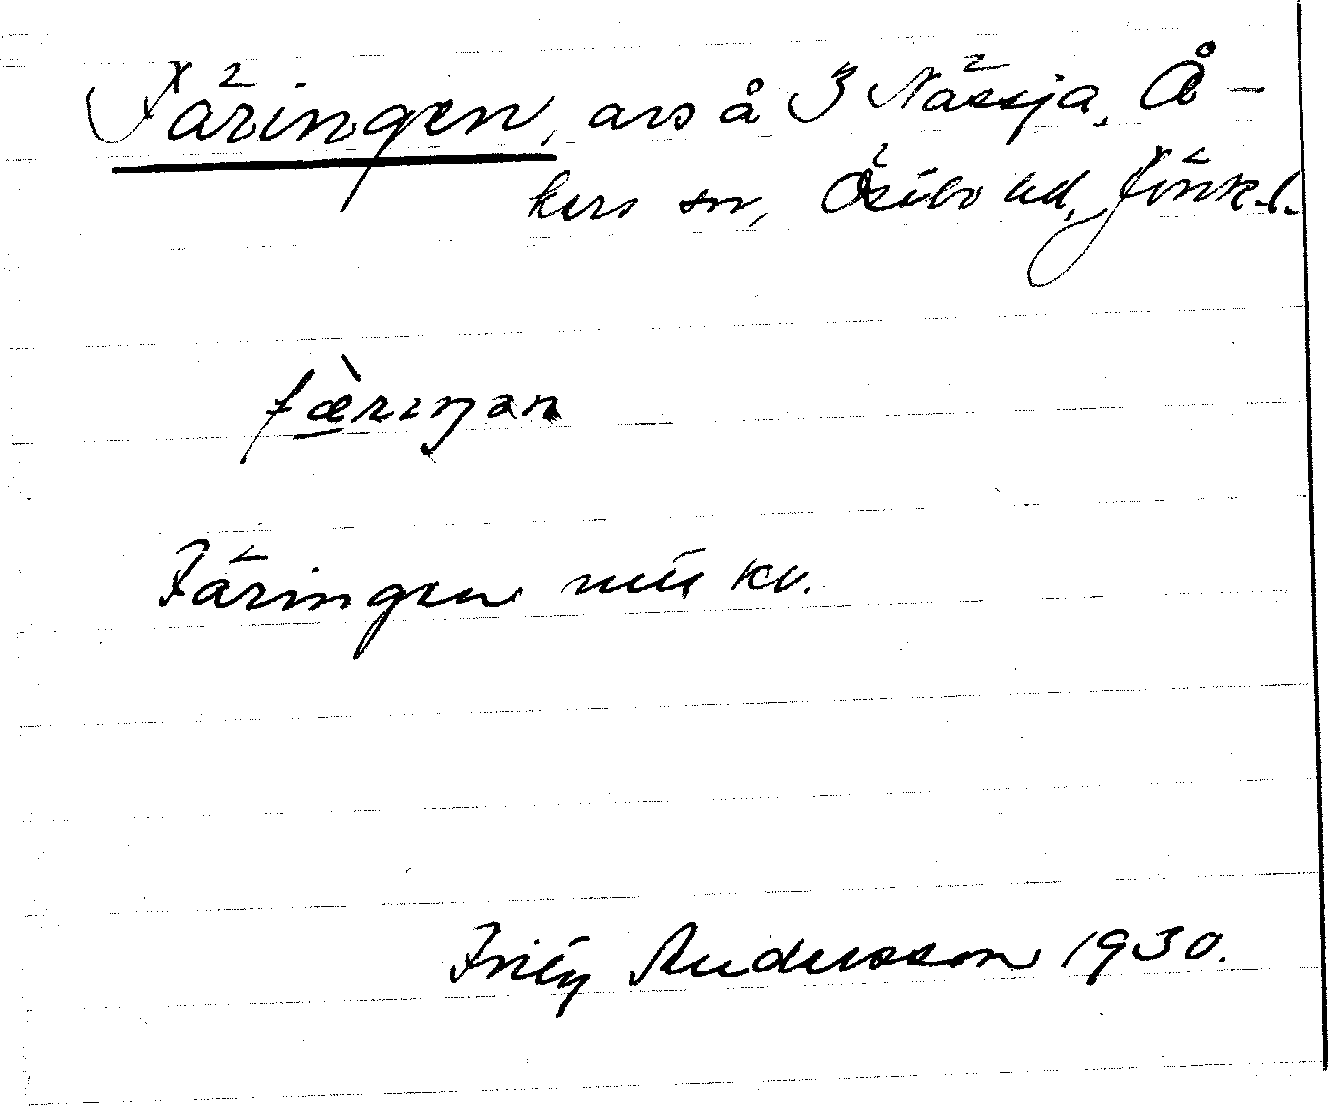 Färingen, avs å 3 Nässja, Å-
kers sn, Östbo hd, Jönk.l.
fæ̀rıŋan
Färingen nuv kv.
Frity Andersson 1930.